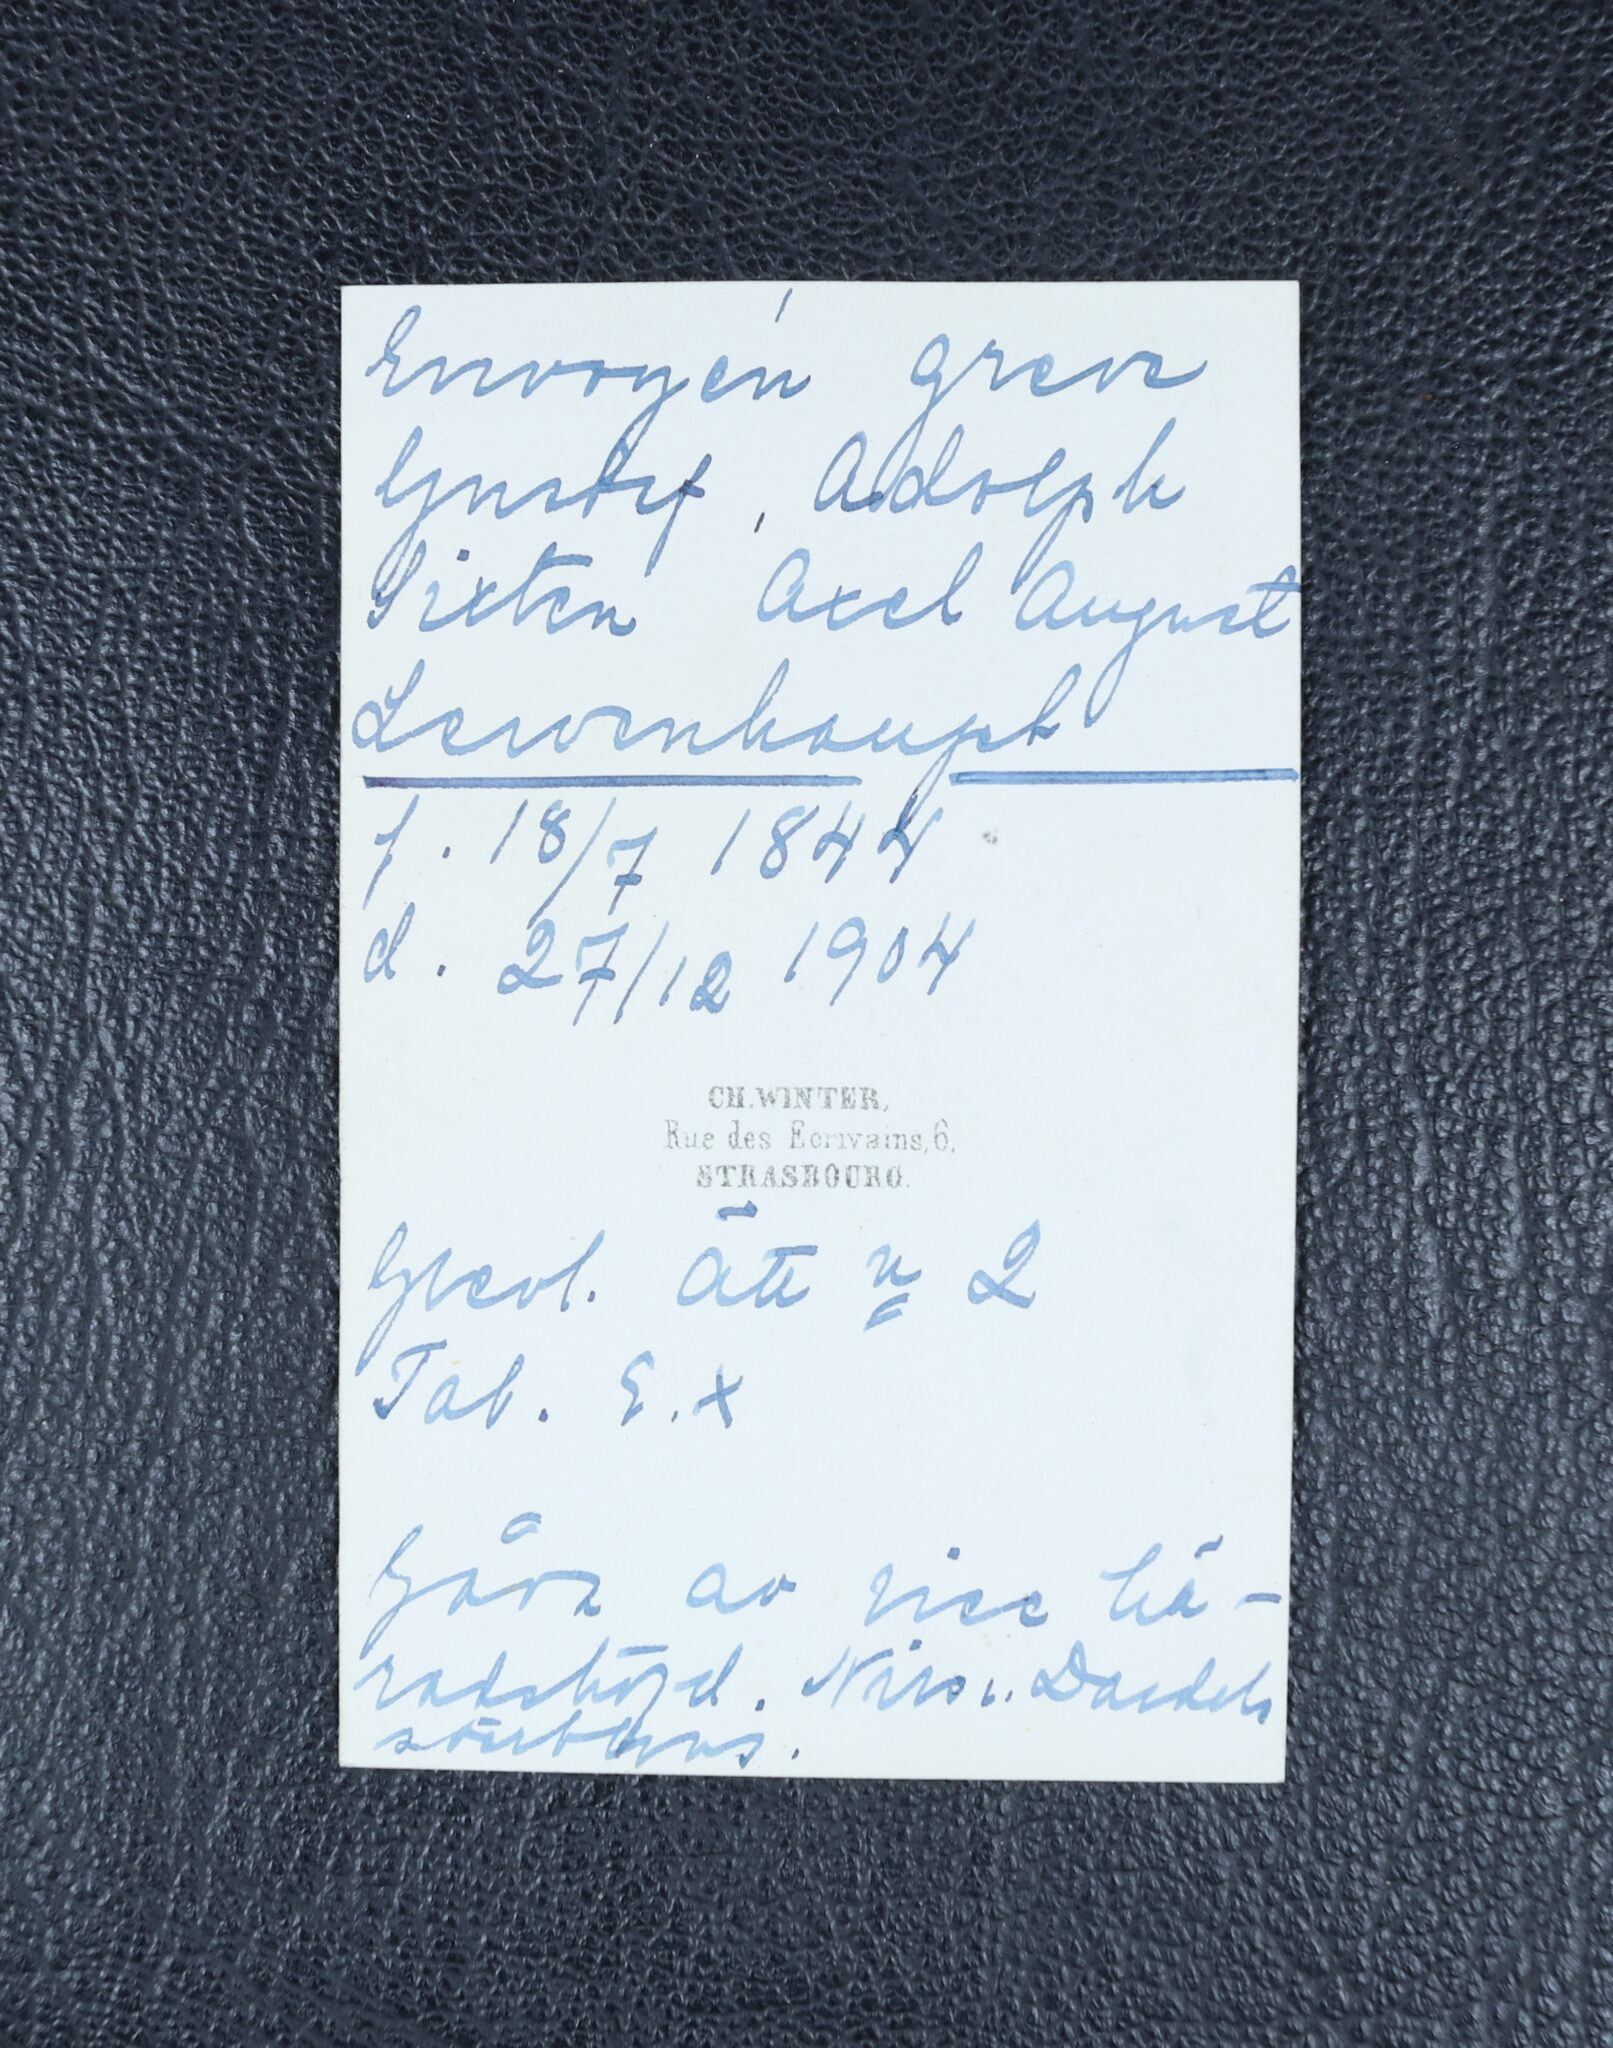 Envoyén greve
Gustaf, Adolph
Sixten Axel August
Lewenhaupt
f. 18/7 1844
d. 27/12 1904
CH. WINTER,
Rue des Ecrivains, 6,
STRASBOURG.
Grevl. Ätt n 2
Tab. E.x
Gåva av vice hä-
radshövd. Daedels
sterbhus.